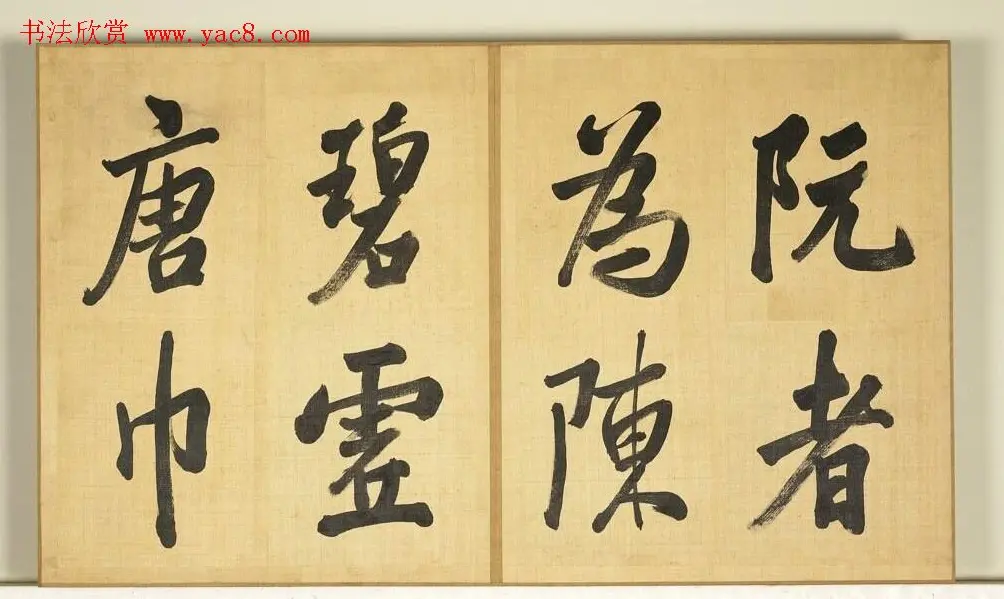 书法欣赏 www.yac8.com
阮者
為陳
碧虛
唐巾